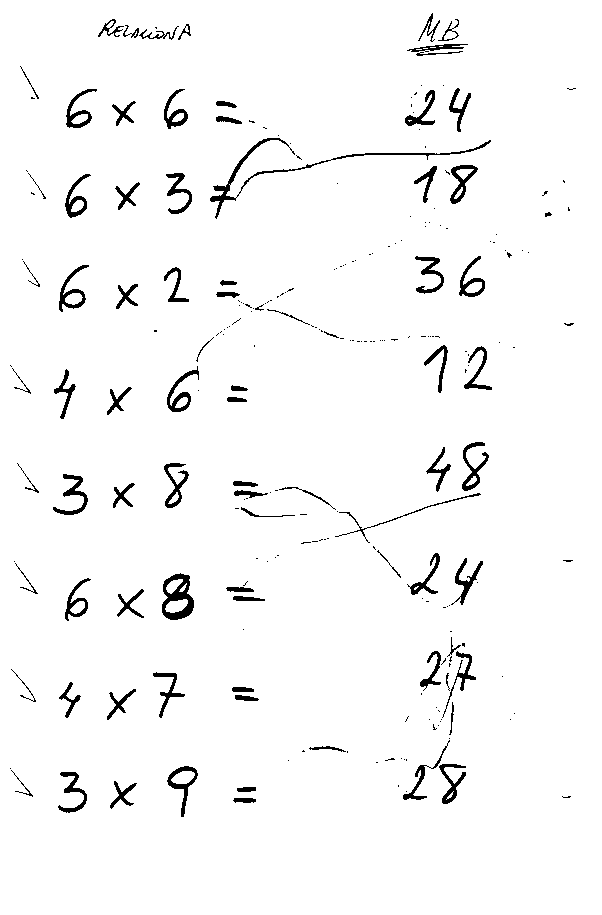 RELACIONA MB
6 x 6 = 24
6 x 3 = 18
6 x 2 = 36
4 x 6 = 12
3 x 8 = 48
6 x 8 = 24
4 x 7 = 27
3 x 9 = 28